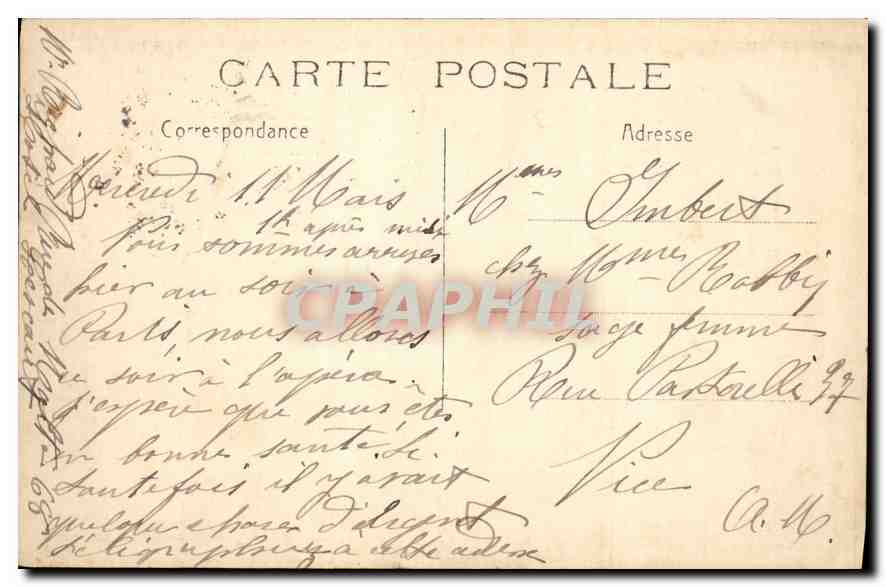 CARTE POSTALE
Correspondance
Adresse
Mercredi 11 Mais
1h après midi
Nous sommes arrivés
hier au soir à
Paris, nous allons
ce soir à l'opéra.
J'espère que vous êtes
en bonne santé. Si
toutefois il y avait
quelque chose d'urgent
à cette adresse
Mmes Imbert
chez Mme Rabby
sage femme
Rue Pastorelli 37
Nice
A. M.
68
CPAPHIL